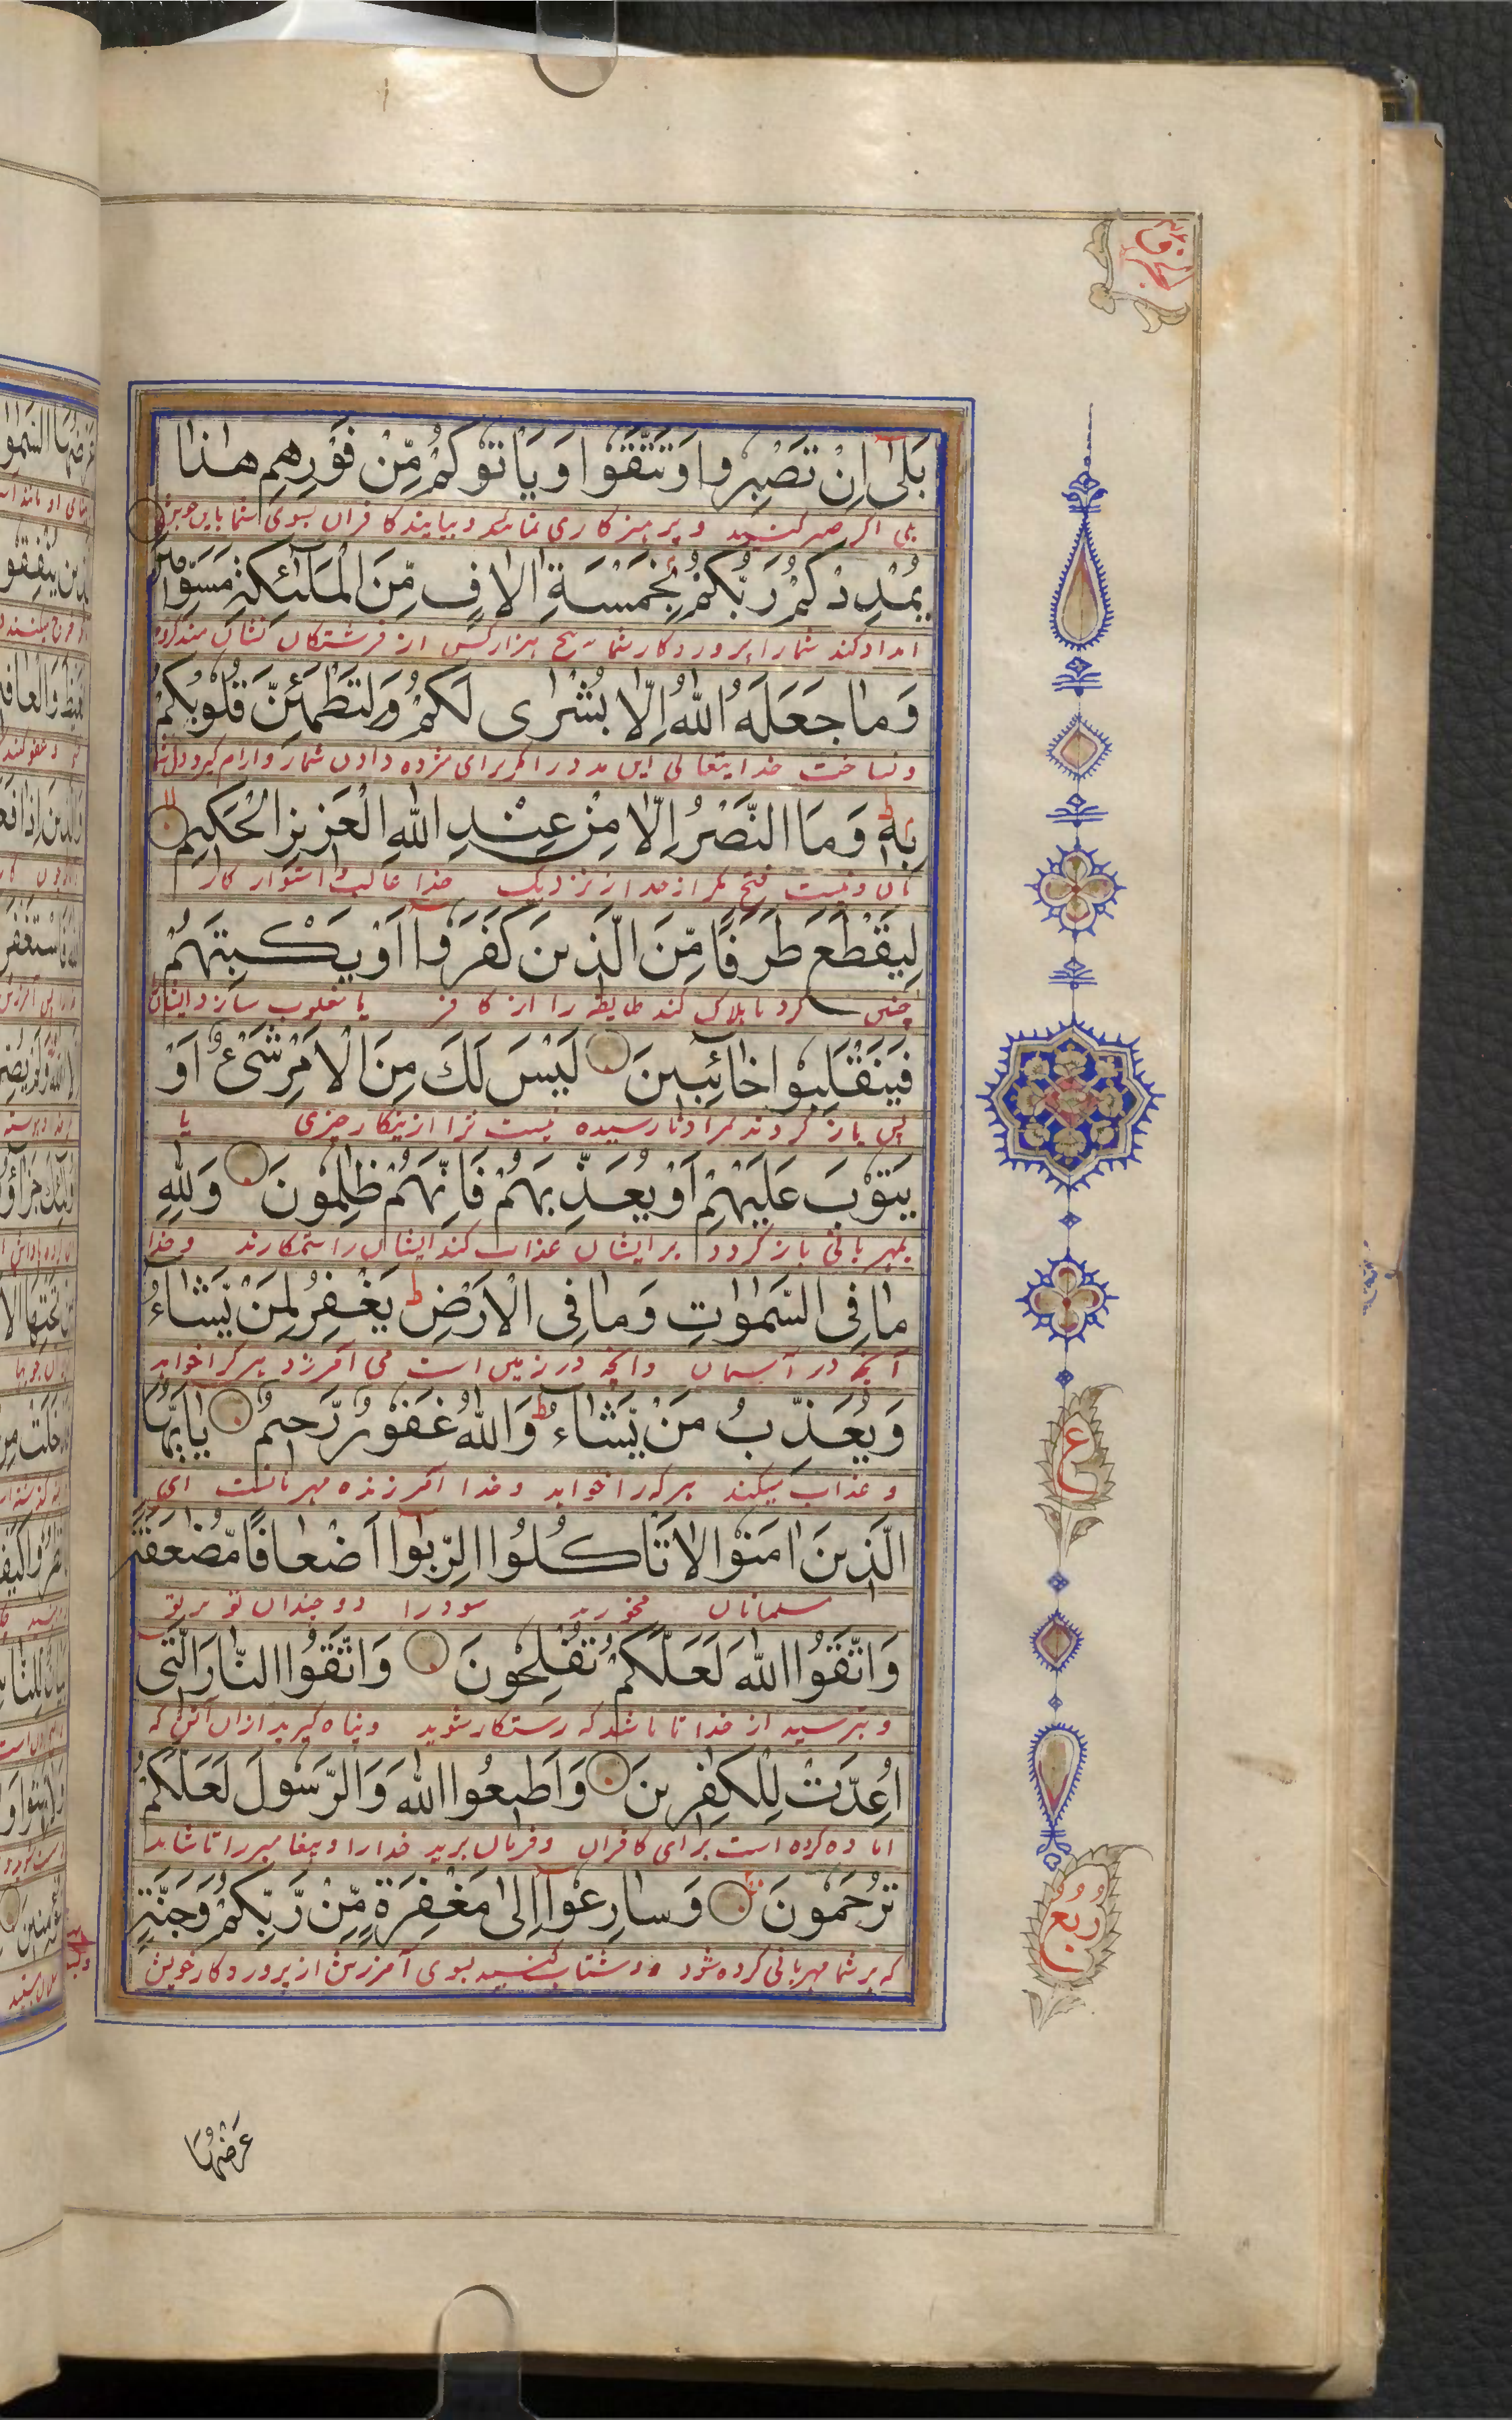 بَلٰى اِنْ تَصْبِرُوا وَتَتَّقُوْا وَيَاْتُوْكُمْ مِّنْ فَوْرِهِمْ هٰذَا
بلی اگر صبر کنید و پرهیزکاری نمائید و بیایند کافران بسوی شما باین
يُمْدِدْكُمْ رَبُّكُمْ بِخَمْسَةِ اٰلَافٍ مِّنَ الْمَلٰٓئِكَةِ مُسَوِّمِيْنَ
امداد کند شما را پروردکار شما به پنج هزار کس از فرشتکان نشان مند کرده
وَمَا جَعَلَهُ اللّٰهُ اِلَّا بُشْرٰى لَكُمْ وَلِتَطْمَئِنَّ قُلُوْبُكُمْ
و نساخت خدایتعالی این مدد را مکر برای مژده دادن شما و آرام کیرد دل شما
بِهٖ ط وَمَا النَّصْرُ اِلَّا مِنْ عِنْدِ اللّٰهِ الْعَزِيْزِ الْحَكِيْمِ
بان و نیست فتح مکر از نزدیک خدا غالب استوار کار
لِيَقْطَعَ طَرَفًا مِّنَ الَّذِيْنَ كَفَرُوْٓا اَوْ يَكْبِتَهُمْ
چنین کرد تا هلاک کند طایفه را از کافر یا مغلوب سازد ایشان
فَيَنْقَلِبُوْا خَآئِبِيْنَ لَيْسَ لَكَ مِنَ الْاَمْرِ شَيْءٌ اَوْ
پس باز کردند مراد نارسیده نیست ترا ازینکار چیزی یا
يَتُوْبَ عَلَيْهِمْ اَوْ يُعَذِّبَهُمْ فَاِنَّهُمْ ظٰلِمُوْنَ وَلِلّٰهِ
بمهربانی باز کردد بر ایشان عذاب کند ایشان را ستمکارند و خدا
مَا فِى السَّمٰوٰتِ وَمَا فِى الْاَرْضِ ط يَغْفِرُ لِمَنْ يَّشَآءُ
آنچه در آسمان و انچه در زمین است می آمرزد هر کرا خواهد
وَيُعَذِّبُ مَنْ يَّشَآءُ ط وَاللّٰهُ غَفُوْرٌ رَّحِيْمٌ يٰٓاَيُّهَا
و عذاب میکند هر که را خواهد و خدا آمرزنده مهربانست ای
الَّذِيْنَ اٰمَنُوْا لَا تَاْكُلُوا الرِّبٰٓوا اَضْعَافًا مُّضٰعَفَةً
مسلمانان مخورید سود را دو چندان تو بر تو
وَاتَّقُوا اللّٰهَ لَعَلَّكُمْ تُفْلِحُوْنَ وَاتَّقُوا النَّارَ الَّتِىْ
و بترسید از خدا تا باشد که رستکار شوید و پناه کیرید ازان آتش که
اُعِدَّتْ لِلْكٰفِرِيْنَ وَاَطِيْعُوا اللّٰهَ وَالرَّسُوْلَ لَعَلَّكُمْ
اماده کرده است برای کافران و فرمان برید خدا را و پیغامبر را تا شاید
تُرْحَمُوْنَ وَسَارِعُوْٓا اِلٰى مَغْفِرَةٍ مِّنْ رَّبِّكُمْ وَجَنَّةٍ
که بر شما مهربانی کرده شود و شتاب کنید بسوی آمرزش از پروردکار خویش
ع
ربع
عَرْضُهَا